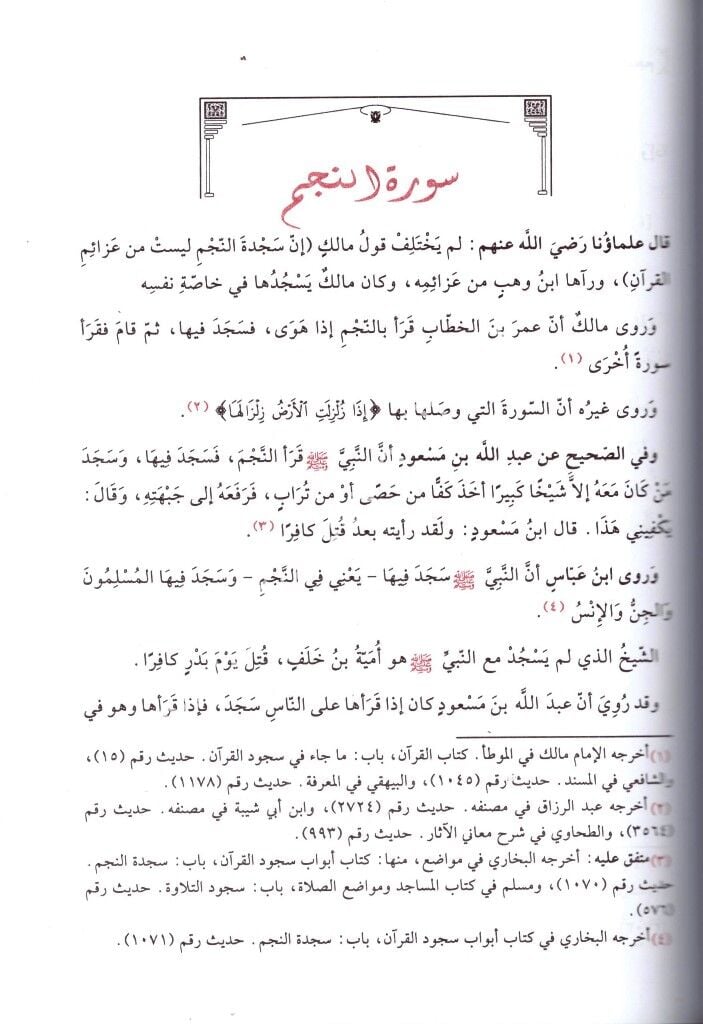 سورة النجم
قال علماؤُنا رَضيَ اللَّه عنهم: لم يَخْتَلِفْ قولُ مالكٍ (إنّ سَجْدةَ النّجْمِ ليستْ من عَزائِمِ
القرآنِ)، ورآها ابنُ وهبٍ من عَزائِمِه، وكان مالكٌ يَسْجُدُها في خاصّةِ نفسِه
وَروى مالكٌ أنّ عمرَ بنَ الخطّابِ قَرَأ بالنّجْمِ إذا هَوَى، فسَجَدَ فيها، ثمّ قامَ فقَرَأ
سورةً أُخْرَى (١).
وَروى غيرُه أنّ السّورةَ التي وصَلها بها ﴿إِذَا زُلْزِلَتِ ٱلْأَرْضُ زِلْزَالَهَا﴾ (٢).
وفي الصّحيح عن عبدِ اللَّه بنِ مَسْعودٍ أنَّ النَّبيَّ ﷺ قَرَأ النَّجْمَ، فَسَجَدَ فِيهَا، وَسَجَدَ
مَنْ كَانَ مَعَهُ إلاَّ شَيْخًا كَبِيرًا أخَذَ كَفًّا من حَصًى أوْ من تُرَابٍ، فَرَفَعَهُ إلى جَبْهَتِهِ، وَقَالَ:
يَكْفِينِي هَذَا. قال ابنُ مَسْعودٍ: ولَقد رأيته بعدُ قُتِلَ كافِرًا (٣).
وَروى ابنُ عبّاسٍ أنَّ النَّبِيَّ ﷺ سَجَدَ فِيهَا - يَعْنِي فِي النَّجْمِ - وَسَجَدَ فِيهَا المُسْلِمُونَ
وَالجِنُّ وَالإِنْسُ (٤).
الشّيخُ الذي لم يَسْجُدْ مع النّبيِّ ﷺ هو أُمَيّةُ بنُ خَلَفٍ، قُتِلَ يَوْمَ بَدْرٍ كافِرًا.
وقد رُوِيَ أنّ عبدَ اللَّه بنَ مَسْعودٍ كان إذا قَرَأها على النّاسِ سَجَدَ، فإذا قَرَأها وهو في
(١) أخرجه الإمام مالك في الموطأ. كتاب القرآن، باب: ما جاء في سجود القرآن. حديث رقم (١٥)،
والشافعي في المسند. حديث رقم (١٠٤٥)، والبيهقي في المعرفة. حديث رقم (١١٧٨).
(٢) أخرجه عبد الرزاق في مصنفه. حديث رقم (٢٧٢٤)، وابن أبي شيبة في مصنفه. حديث رقم
(٣٥٦٤)، والطحاوي في شرح معاني الآثار. حديث رقم (٩٩٣).
(٣) متفق عليه: أخرجه البخاري في مواضع، منها: كتاب أبواب سجود القرآن، باب: سجدة النجم.
حديث رقم (١٠٧٠)، ومسلم في كتاب المساجد ومواضع الصلاة، باب: سجود التلاوة. حديث رقم
(٥٧٦).
(٤) أخرجه البخاري في كتاب أبواب سجود القرآن، باب: سجدة النجم. حديث رقم (١٠٧١).